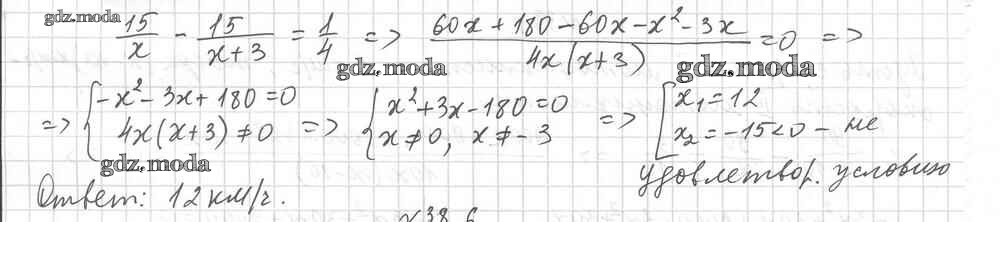 gdz.moda
15/x - 15/(x+3) = 1/4 => (60x + 180 - 60x - x² - 3x)/(4x(x+3)) = 0 =>
gdz.moda gdz.moda
=> { -x² - 3x + 180 = 0 => { x² + 3x - 180 = 0 => [ x₁ = 12
4x(x+3) ≠ 0 x ≠ 0, x ≠ -3 x₂ = -15 < 0 - не
gdz.moda удовлетвор. условию
Ответ: 12 км/г.